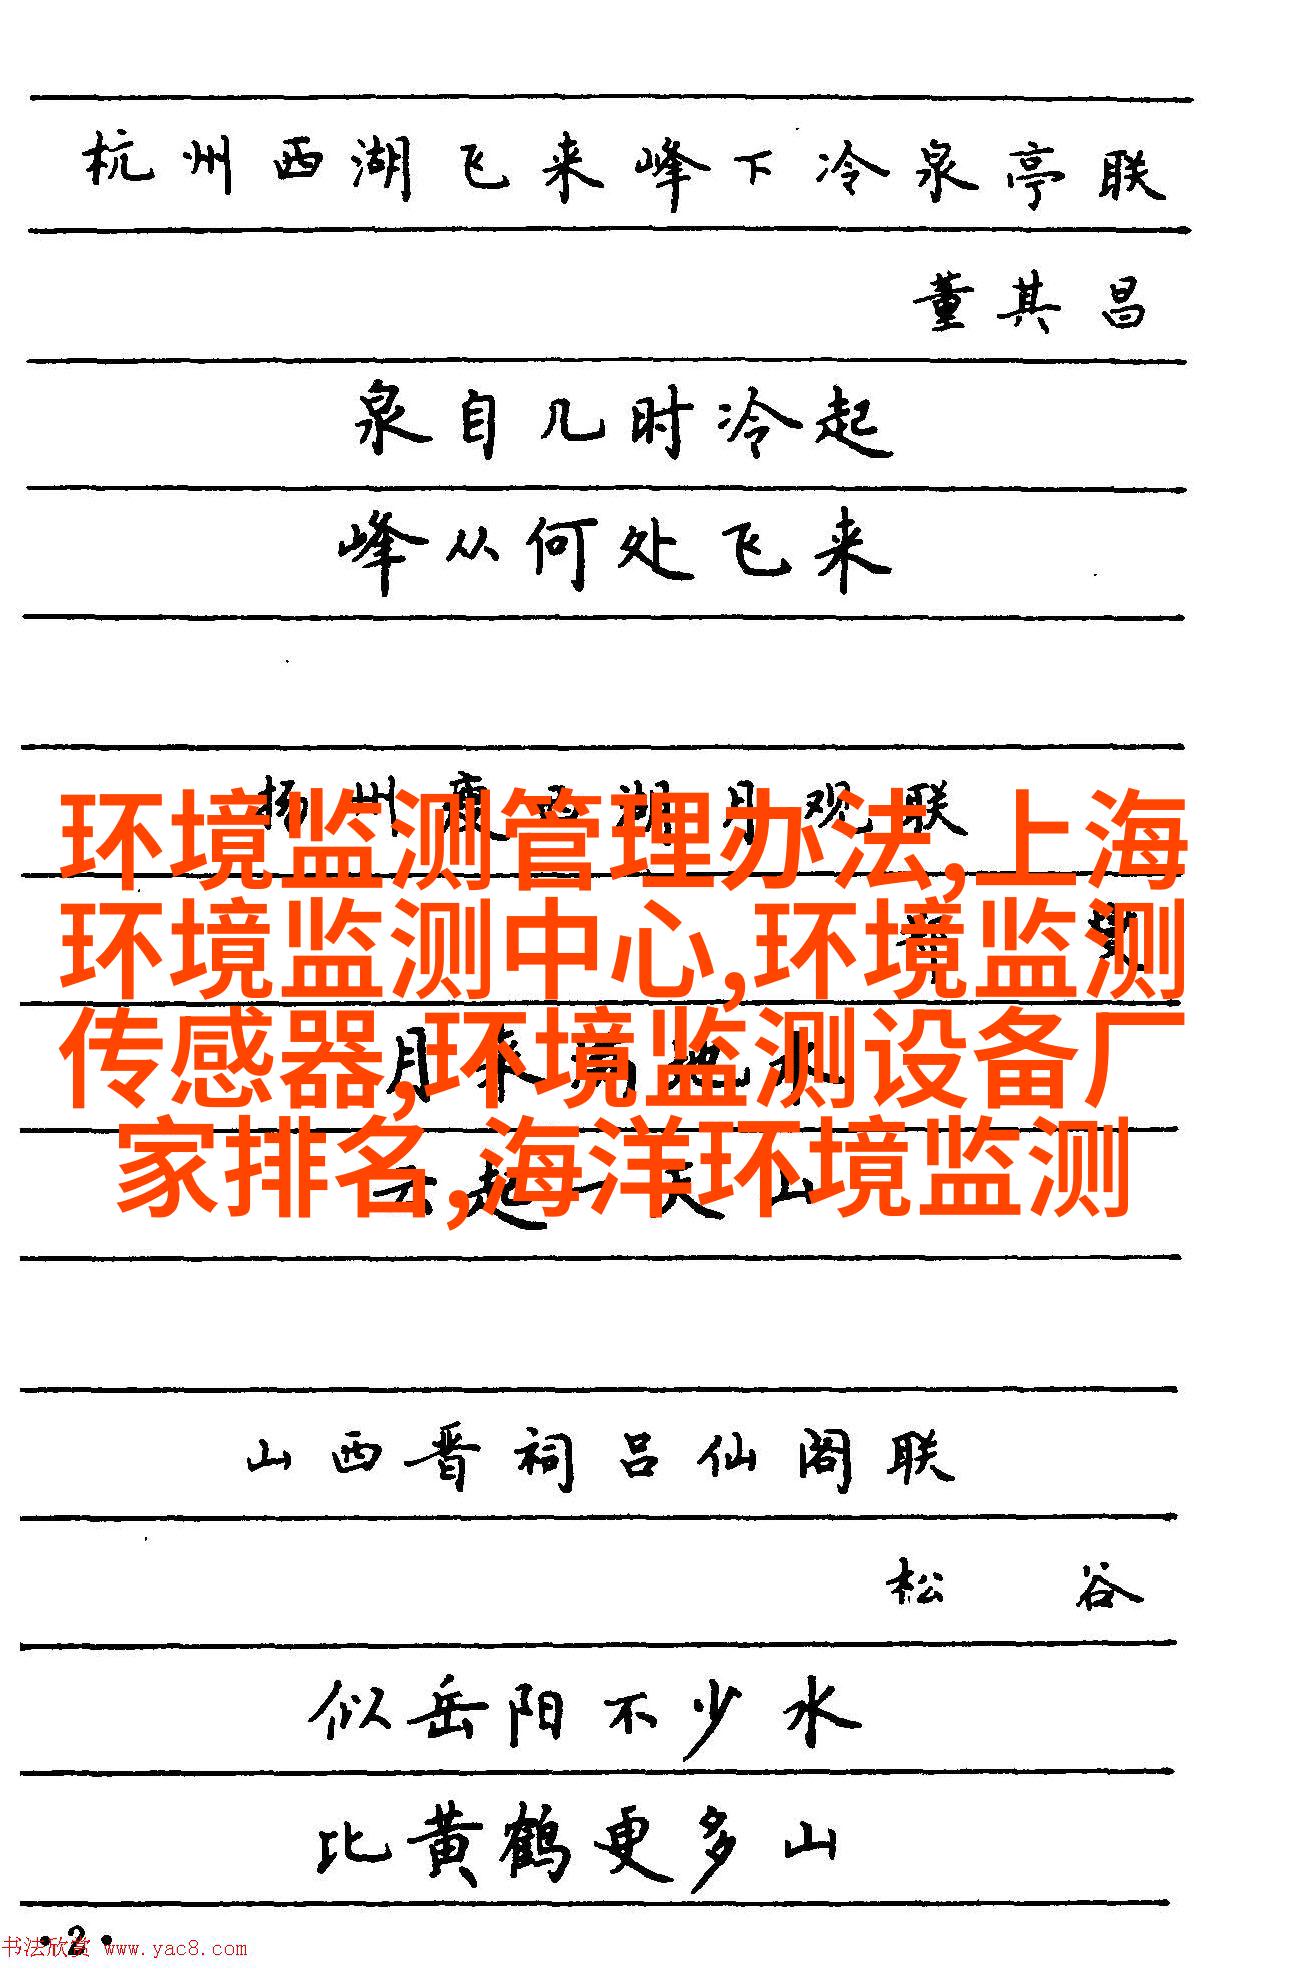 杭州西湖飞来峰下冷泉亭联
董其昌
泉自几时冷起
峰从何处飞来
扬州瘦西湖月观联
环境监测管理办法,上海
环境监测中心,环境监测
传感器,环境监测设备厂
家排名,海洋环境监测
月来满地水
云起一天山
山西晋祠吕仙阁联
松谷
似岳阳不少水
比黄鹤更多山
·2·
书法欣赏 www.yac8.com